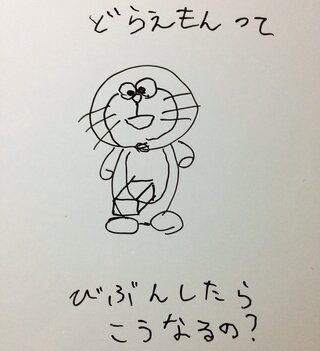 どらえもんって
びぶんしたら
こうなるの?